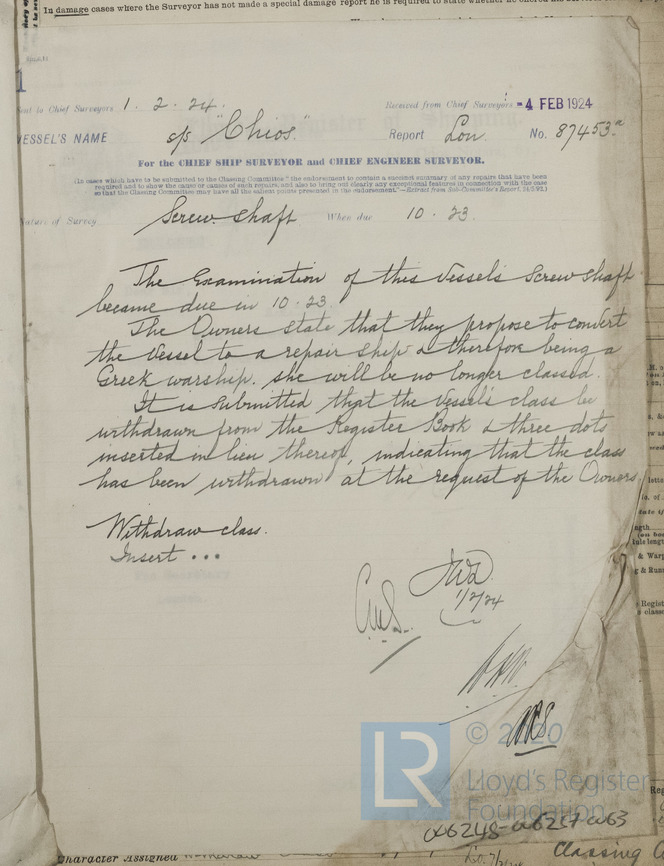 In damage cases where the Surveyor has not made a special damage report he is required to state whether he
Sent to Chief Surveyors 1. 2. 24. Received from Chief Surveyors - 4 FEB 1924
VESSEL'S NAME s/s "Chios." Report Lon No. 87453a
For the CHIEF SHIP SURVEYOR and CHIEF ENGINEER SURVEYOR.
(In cases which have to be submitted to the Classing Committee "the endorsement to contain a succinct summary of any repairs that have been
required and to show the cause or causes of such repairs, and also to bring out clearly any exceptional features in connection with the case
so that the Classing Committee may have all the salient points presented in the endorsement."—Extract from Sub-Committee's Report,
Nature of Survey Screw Shaft When due 10. 23.
The Examination of this Vessel's Screw Shaft
became due in 10. 23.
The Owners state that they propose to convert
the Vessel to a repair ship & therefore being a
Greek warship. she will be no longer classed.
It is submitted that the Vessel's class be
withdrawn from the Register Book & three dots
inserted in lieu thereof, indicating that the class
has been withdrawn at the request of the Owners.
Withdraw class.
Insert ...
1/2/24
© 2020
LR
Lloyd's Register
Foundation
Character Assigned
Classing